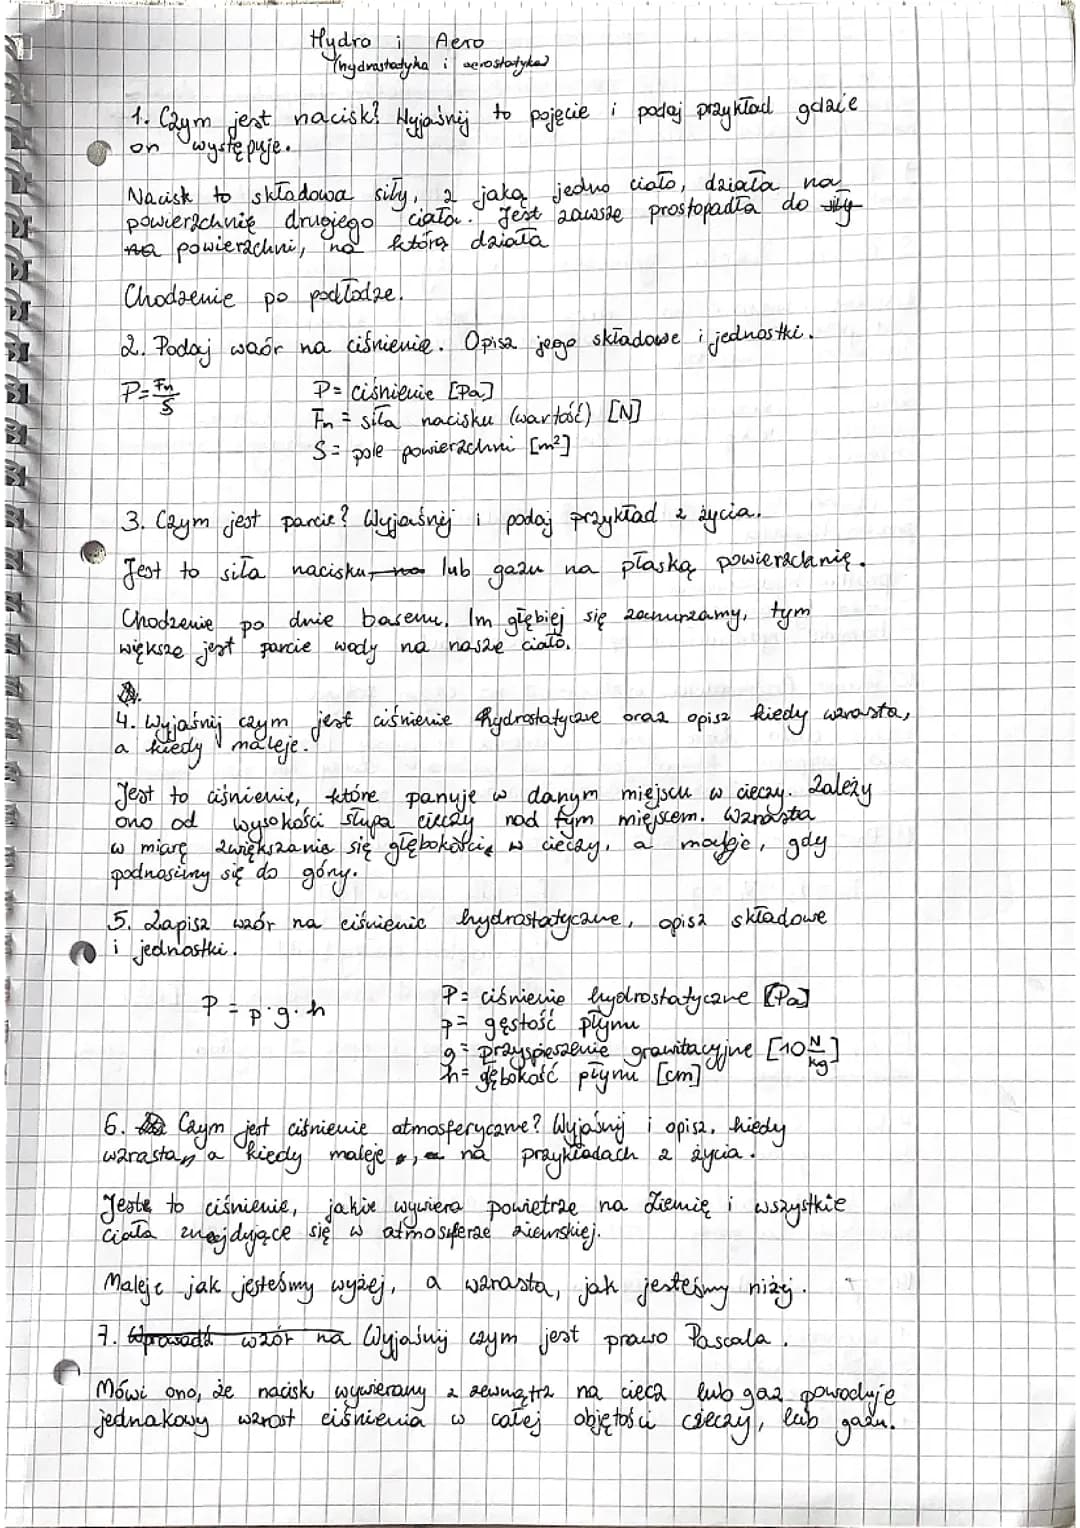 Hydro i Aero
(hydrostatyka i aerostatyka)
1. Czym jest nacisk? Wyjaśnij to pojęcie i podaj przykład gdzie
on występuje.
Nacisk to składowa siły, z jaką jedno ciało, działa na
powierzchnię drugiego ciała. Jest zawsze prostopadła do siły
na powierzchni, na którą działa
Chodzenie po podłodze.
2. Podaj wzór na ciśnienie. Opisz jego składowe i jednostki.
P=Fn/S
P= ciśnienie [Pa]
Fn = siła nacisku (wartość) [N]
S= pole powierzchni [m²]
3. Czym jest parcie? Wyjaśnij i podaj przykład z życia.
Jest to siła nacisku, na lub gazu na płaską powierzchnię.
Chodzenie po dnie basenu. Im głębiej się zanurzamy, tym
większe jest parcie wody na nasze ciało.
4. Wyjaśnij czym jest ciśnienie hydrostatyczne oraz opisz kiedy wzrasta,
a kiedy maleje.
Jest to ciśnienie, które panuje w danym miejscu w cieczy. Zależy
ono od wysokości słupa cieczy nad tym miejscem. Wzrasta
w miarę zwiększania się głębokości w cieczy, a maleje, gdy
podnosimy się do góry.
5. Zapisz wzór na ciśnienie hydrostatyczne, opisz składowe
i jednostki.
P = p·g·h
P= ciśnienie hydrostatyczne [Pa]
p= gęstość płynu
g= przyspieszenie grawitacyjne [10 N/kg]
h= głębokość płynu [cm]
6. Czym jest ciśnienie atmosferyczne? Wyjaśnij i opisz, kiedy
wzrasta, a kiedy maleje, na przykładach z życia.
Jest to ciśnienie, jakie wywiera powietrze na Ziemię i wszystkie
ciała znajdujące się w atmosferze ziemskiej.
Maleje jak jesteśmy wyżej, a wzrasta, jak jesteśmy niżej.
7. Wprowadź wzór na Wyjaśnij czym jest prawo Pascala.
Mówi ono, że nacisk wywierany z zewnątrz na ciecz lub gaz powoduje
jednakowy wzrost ciśnienia w całej objętości cieczy, lub gazu.